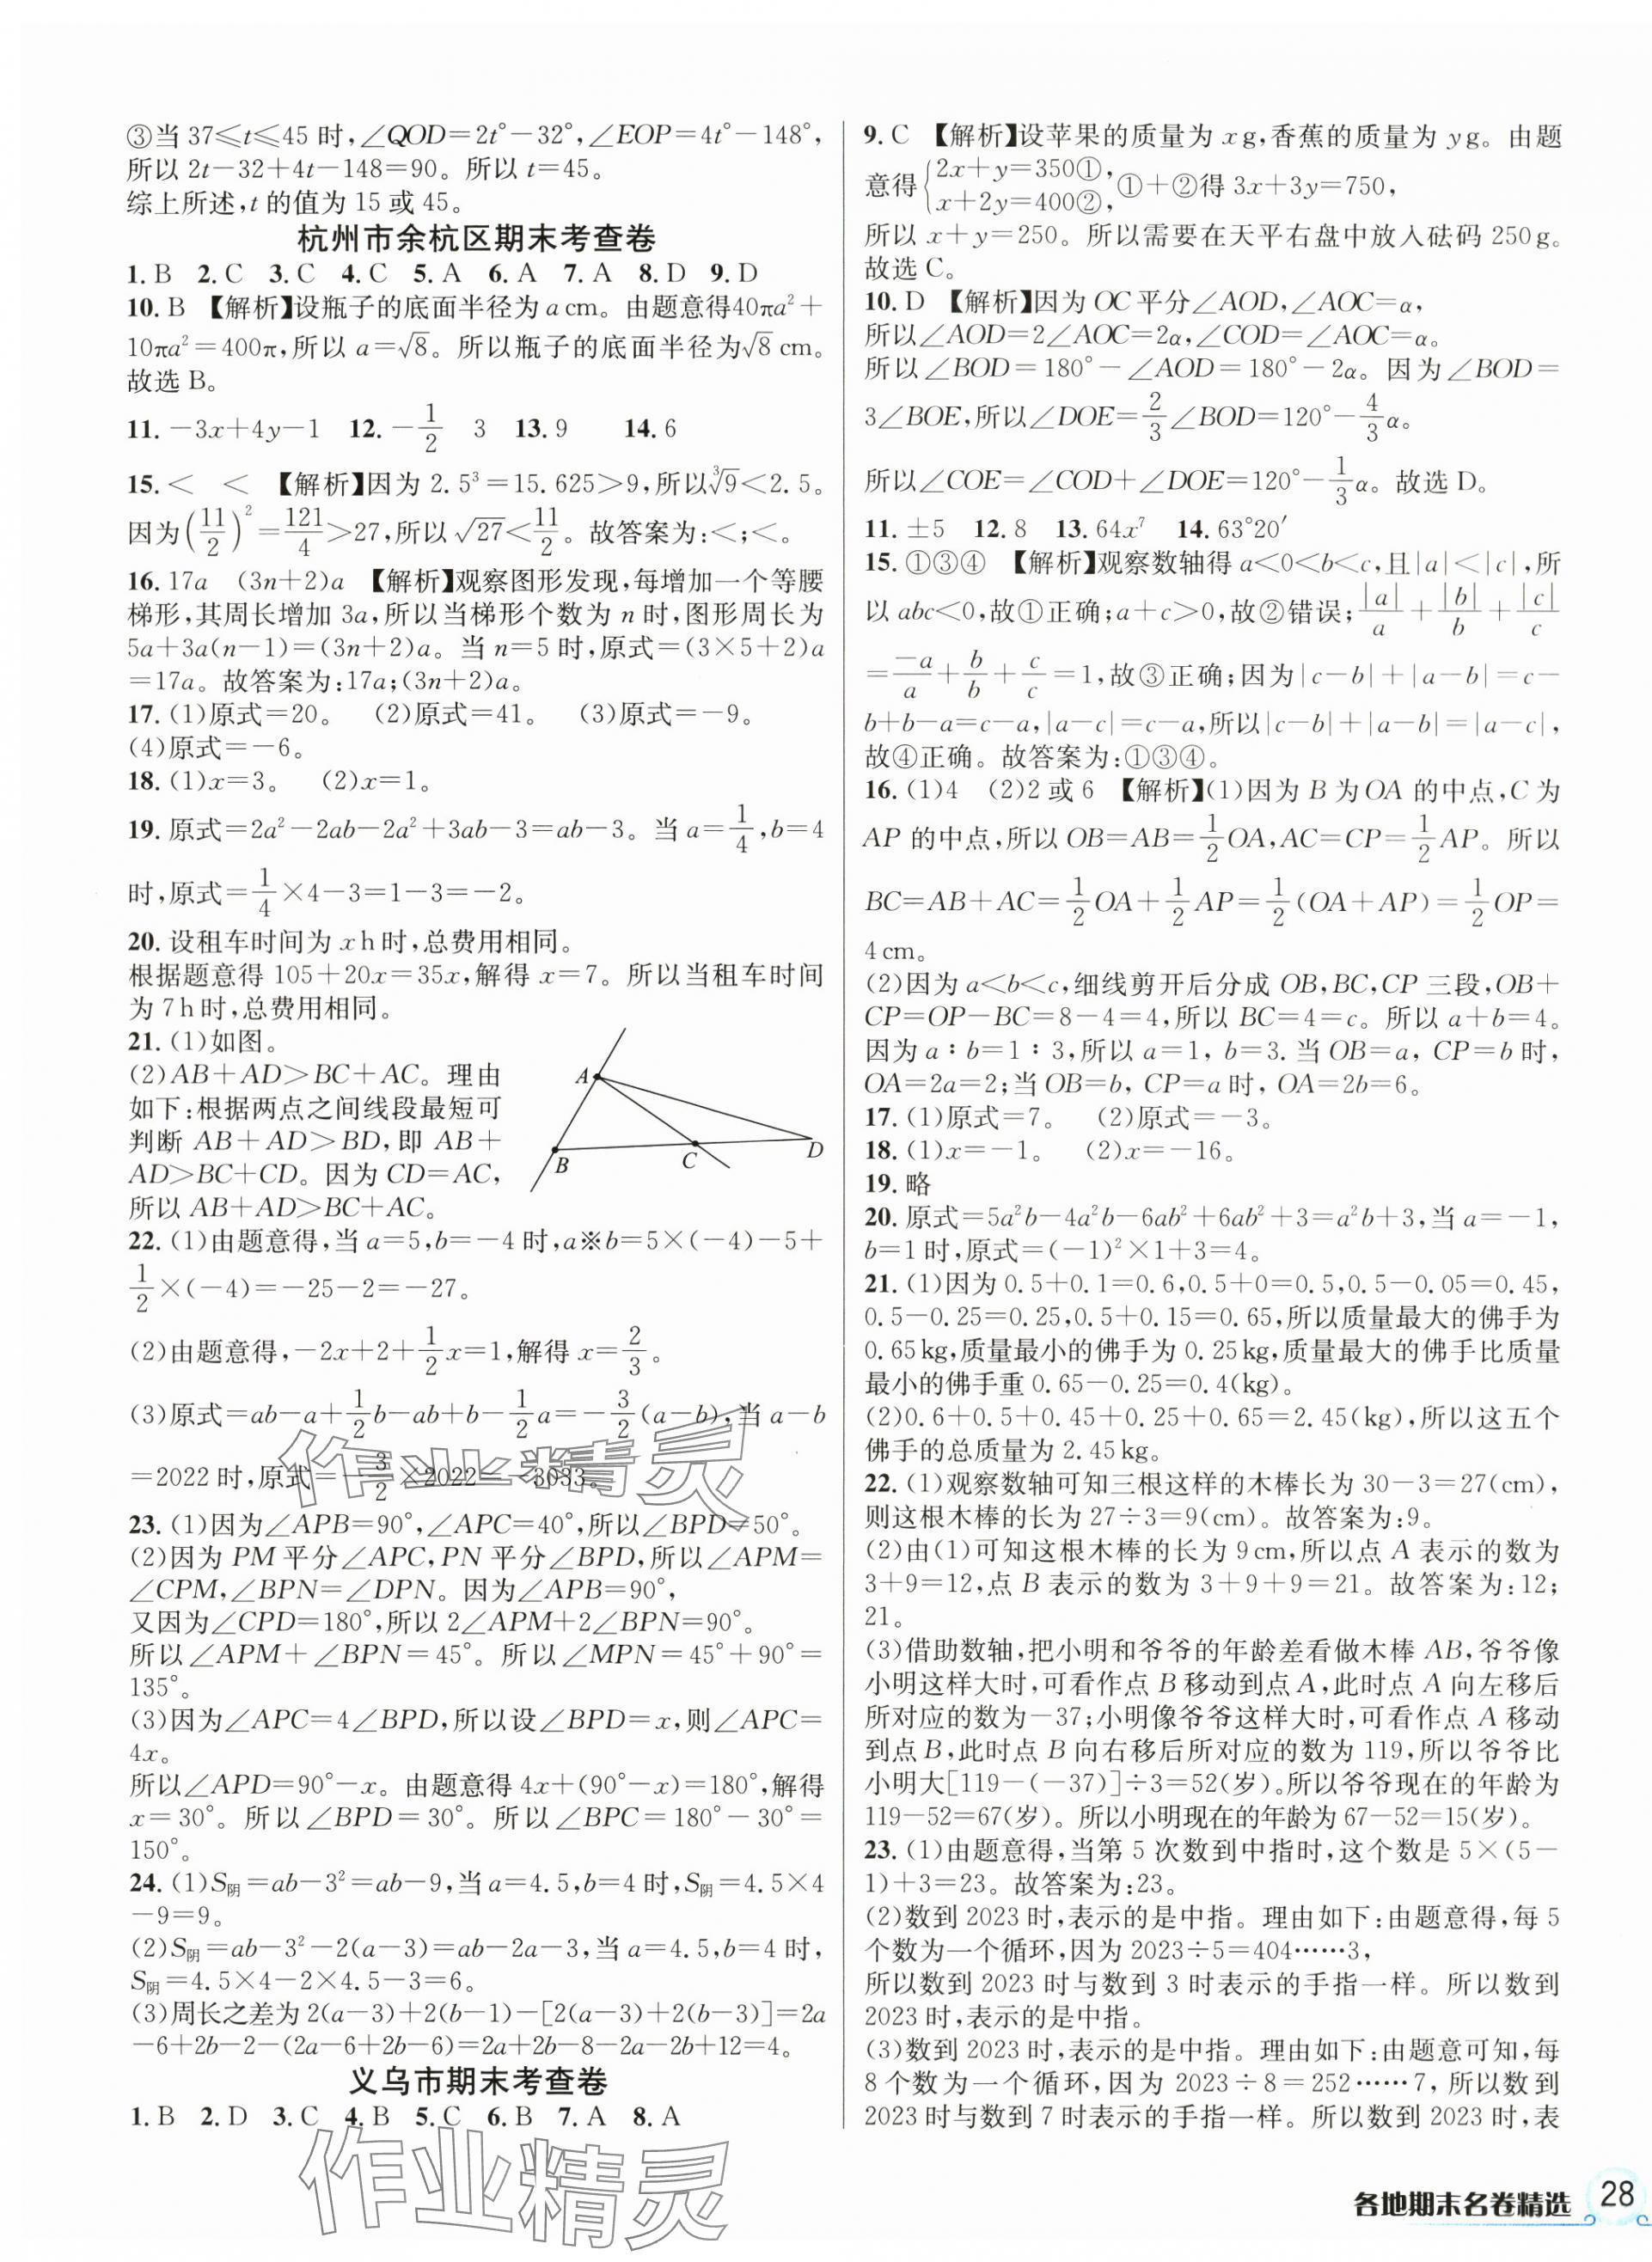 ③当 37≤t≤45 时,∠QOD=2t°-32°,∠EOP=4t°-148°,
所以 2t-32+4t-148=90。所以 t=45。
综上所述,t 的值为 15 或 45。
杭州市余杭区期末考查卷
1. B 2. C 3. C 4. C 5. A 6. A 7. A 8. D 9. D
10. B 【解析】设瓶子的底面半径为 a cm。由题意得40πa²+
10πa²=400π,所以 a=√8。所以瓶子的底面半径为√8 cm。
故选 B。
11. -3x+4y-1 12. -1/2 3 13. 9 14. 6
15. < < 【解析】因为 2.5³=15.625>9,所以∛9<2.5。
因为(11/2)²=121/4>27,所以 √27<11/2。故答案为:<;<。
16. 17a (3n+2)a 【解析】观察图形发现,每增加一个等腰
梯形,其周长增加 3a,所以当梯形个数为 n 时,图形周长为
5a+3a(n-1)=(3n+2)a。当 n=5 时,原式=(3×5+2)a
=17a。故答案为:17a;(3n+2)a。
17. (1)原式=20。 (2)原式=41。 (3)原式=-9。
(4)原式=-6。
18. (1)x=3。 (2)x=1。
19. 原式=2a²-2ab-2a²+3ab-3=ab-3。当 a=1/4,b=4
时,原式=1/4×4-3=1-3=-2。
20. 设租车时间为 x h时,总费用相同。
根据题意得 105+20x=35x,解得 x=7。所以当租车时间
为 7 h时,总费用相同。
21. (1)如图。
(2)AB+AD>BC+AC。理由
如下:根据两点之间线段最短可
判断 AB+AD>BD,即 AB+
AD>BC+CD。因为 CD=AC,
所以 AB+AD>BC+AC。
A
B
C
D
22. (1)由题意得,当 a=5,b=-4 时,a※b=5×(-4)-5+
1/2×(-4)=-25-2=-27。
(2)由题意得,-2x+2+1/2x=1,解得 x=2/3。
(3)原式=ab-a+1/2b-ab+b-1/2a=-3/2(a-b),当 a-b
=2022 时,原式=-3/2×2022=-3033。
23. (1)因为∠APB=90°,∠APC=40°,所以∠BPD=50°。
(2)因为 PM 平分∠APC,PN 平分∠BPD,所以∠APM=
∠CPM,∠BPN=∠DPN。因为∠APB=90°,
又因为∠CPD=180°,所以 2∠APM+2∠BPN=90°。
所以∠APM+∠BPN=45°。所以∠MPN=45°+90°=
135°。
(3)因为∠APC=4∠BPD,所以设∠BPD=x,则∠APC=
4x。
所以∠APD=90°-x。由题意得 4x+(90°-x)=180°,解得
x=30°。所以∠BPD=30°。所以∠BPC=180°-30°=
150°。
24. (1)S阴=ab-3²=ab-9,当 a=4.5,b=4 时,S阴=4.5×4
-9=9。
(2)S阴=ab-3²-2(a-3)=ab-2a-3,当 a=4.5,b=4 时,
S阴=4.5×4-2×4.5-3=6。
(3)周长之差为 2(a-3)+2(b-1)-[2(a-3)+2(b-3)]=2a
-6+2b-2-(2a-6+2b-6)=2a+2b-8-2a-2b+12=4。
义乌市期末考查卷
1. B 2. D 3. C 4. B 5. C 6. B 7. A 8. A
9. C 【解析】设苹果的质量为 x g,香蕉的质量为 y g。由题
意得{2x+y=350①, x+2y=400②, ①+②得 3x+3y=750,
所以 x+y=250。所以需要在天平右盘中放入砝码 250 g。
故选C。
10. D 【解析】因为 OC 平分∠AOD,∠AOC=α,
所以∠AOD=2∠AOC=2α,∠COD=∠AOC=α。
所以∠BOD=180°-∠AOD=180°-2α。因为∠BOD=
3∠BOE,所以∠DOE=2/3∠BOD=120°-4/3α。
所以∠COE=∠COD+∠DOE=120°-1/3α。故选 D。
11. ±5 12. 8 13. 64x⁷ 14. 63°20′
15. ①③④ 【解析】观察数轴得 a<0<b<c,且|a|<|c|,所
以 abc<0,故①正确;a+c>0,故②错误;|a|/a+|b|/b+|c|/c
=-a/a+b/b+c/c=1,故③正确;因为|c-b|+|a-b|=c-
b+b-a=c-a,|a-c|=c-a,所以|c-b|+|a-b|=|a-c|,
故④正确。故答案为:①③④。
16. (1)4 (2)2 或 6 【解析】(1)因为 B 为OA 的中点,C 为
AP 的中点,所以 OB=AB=1/2OA,AC=CP=1/2AP。所以
BC=AB+AC=1/2OA+1/2AP=1/2(OA+AP)=1/2OP=
4 cm。
(2)因为 a<b<c,细线剪开后分成 OB,BC,CP 三段,OB+
CP=OP-BC=8-4=4,所以 BC=4=c。所以 a+b=4。
因为 a∶b=1∶3,所以 a=1, b=3. 当 OB=a, CP=b 时,
OA=2a=2;当 OB=b, CP=a 时, OA=2b=6。
17. (1)原式=7。 (2)原式=-3。
18. (1)x=-1。 (2)x=-16。
19. 略
20. 原式=5a²b-4a²b-6ab²+6ab²+3=a²b+3,当 a=-1,
b=1 时,原式=(-1)²×1+3=4。
21. (1)因为 0.5+0.1=0.6,0.5+0=0.5,0.5-0.05=0.45,
0.5-0.25=0.25,0.5+0.15=0.65,所以质量最大的佛手为
0.65 kg,质量最小的佛手为 0.25 kg,质量最大的佛手比质量
最小的佛手重 0.65-0.25=0.4(kg)。
(2)0.6+0.5+0.45+0.25+0.65=2.45(kg),所以这五个
佛手的总质量为 2.45 kg。
22. (1)观察数轴可知三根这样的木棒长为 30-3=27(cm),
则这根木棒的长为 27÷3=9(cm)。故答案为:9。
(2)由(1)可知这根木棒的长为 9 cm,所以点 A 表示的数为
3+9=12,点 B 表示的数为 3+9+9=21。故答案为:12;
21。
(3)借助数轴,把小明和爷爷的年龄差看做木棒 AB,爷爷像
小明这样大时,可看作点 B 移动到点 A,此时点 A 向左移后
所对应的数为-37;小明像爷爷这样大时,可看作点 A 移动
到点 B,此时点 B 向右移后所对应的数为 119,所以爷爷比
小明大[119-(-37)]÷3=52(岁)。所以爷爷现在的年龄为
119-52=67(岁)。所以小明现在的年龄为 67-52=15(岁)。
23. (1)由题意得,当第 5 次数到中指时,这个数是 5×(5-
1)+3=23。故答案为:23。
(2)数到 2023 时,表示的是中指。理由如下:由题意得,每 5
个数为一个循环,因为 2023÷5=404……3,
所以数到 2023 时与数到 3 时表示的手指一样。所以数到
2023 时,表示的是中指。
(3)数到 2023 时,表示的是中指。理由如下:由题意可知,每
8 个数为一个循环,因为 2023÷8=252……7,所以数到
2023 时与数到 7 时表示的手指一样。所以数到 2023 时,表
作业精灵
作业精灵
各地期末名卷精选 28